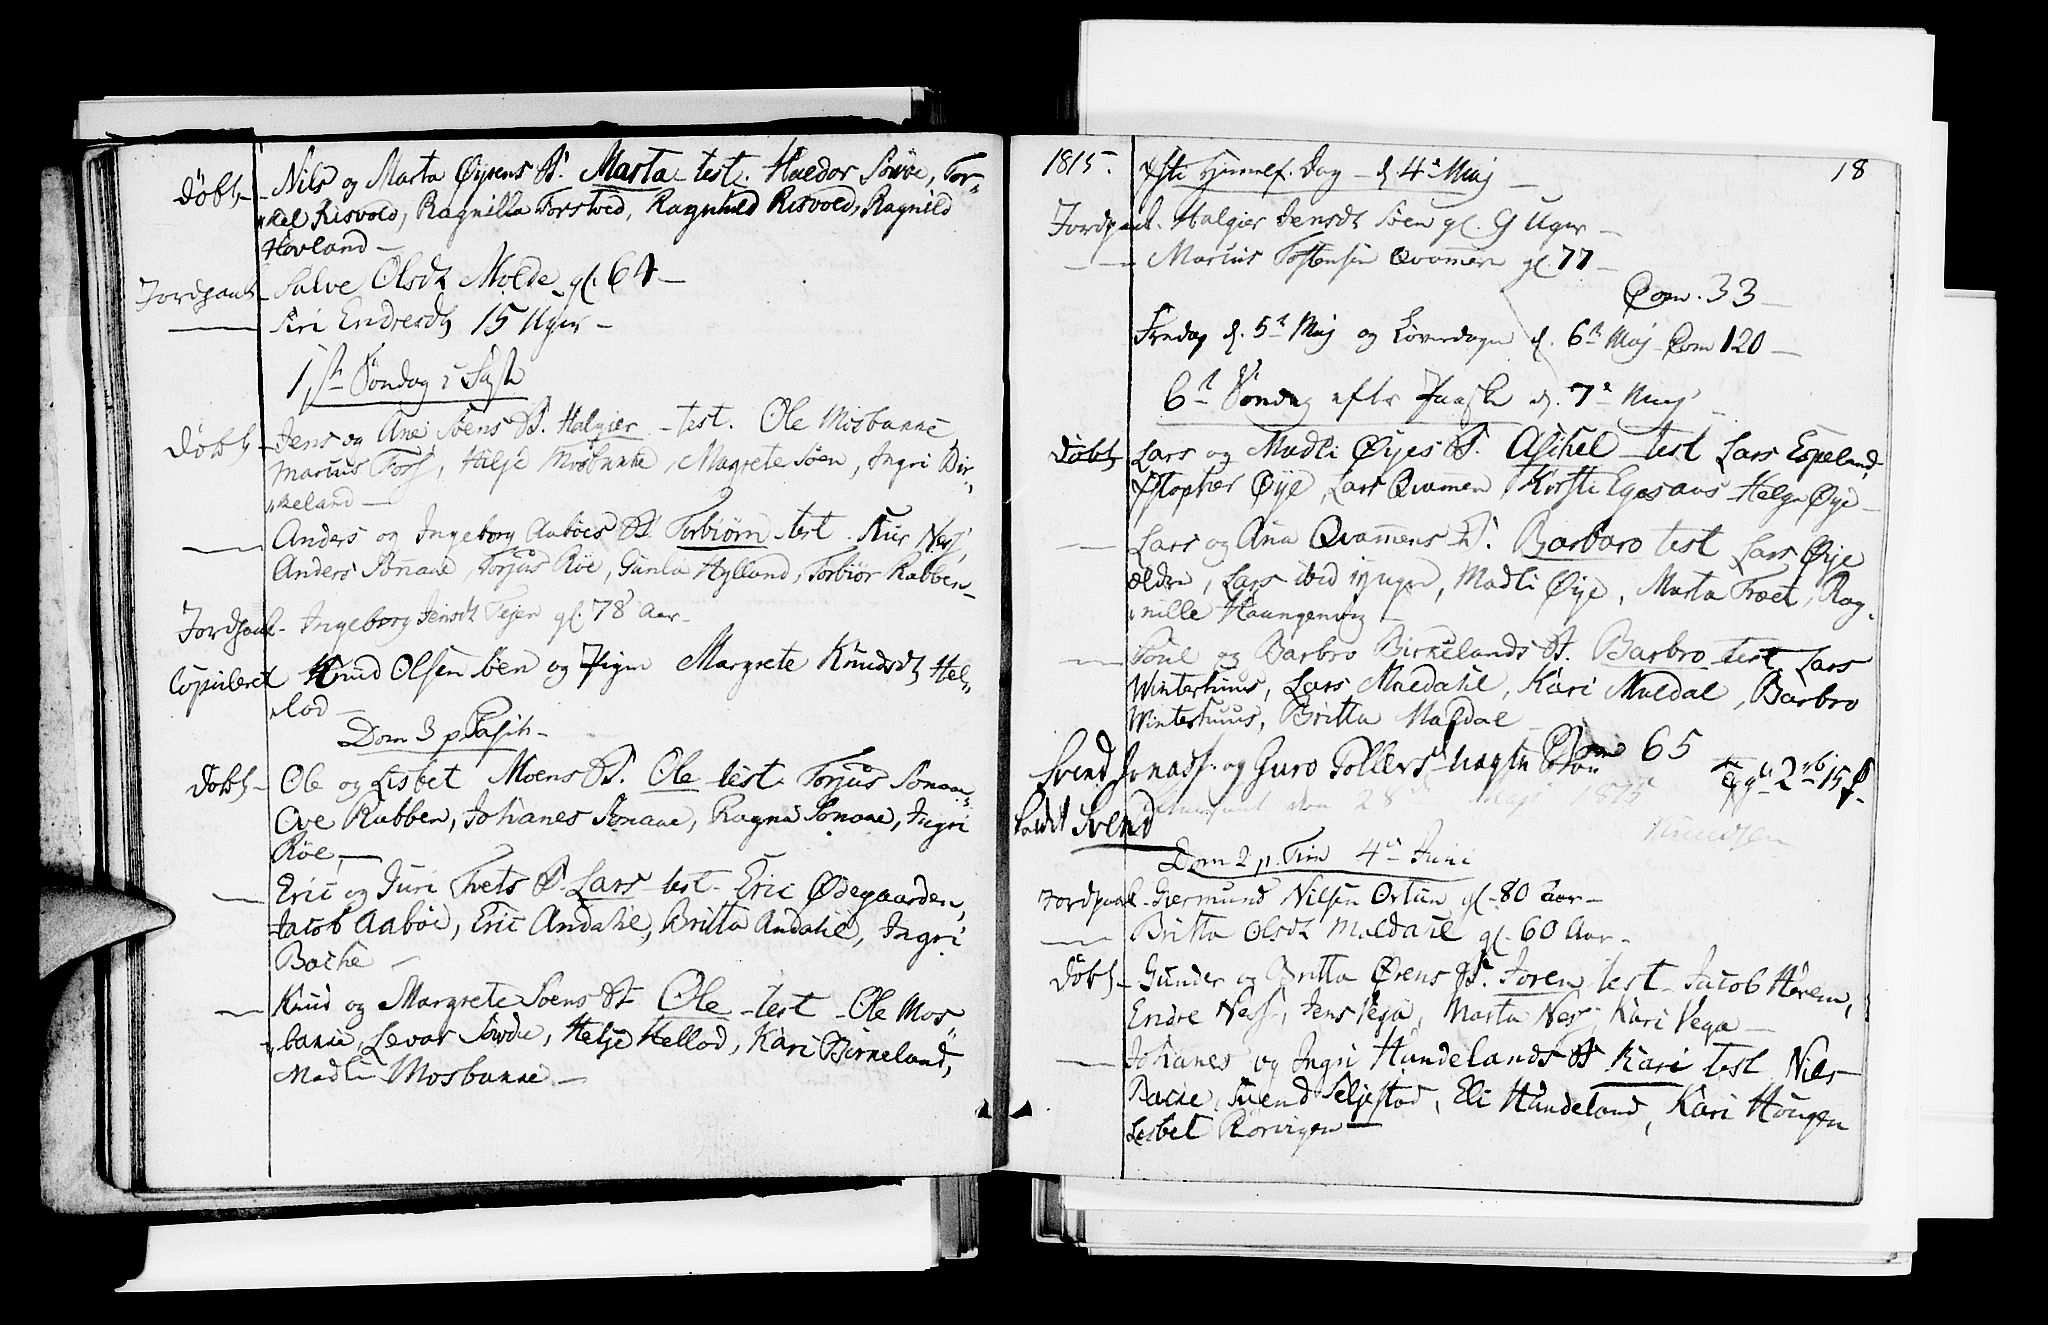 Döbt - Nils og Marta Øyrens B. Marta test. Haldor Sowe, Tor-
kel Risvold, Ragnilla Torsted, Ragnild Risvold, Ragnild
Hovland -
Jordpaak - Salve Olsdt Molde gl. 64 -
Siri Endresdt 15 Uger -
1ste Söndag i Faste
Döbt - Jens og Ane Söens B. Halgier - test. Ole Mosbanne
Marius Foss, Hilje Mosbanne, Magrete Söen, Ingri Bir-
keland -
Anders og Ingeborg Aaböes B. Torbiörn test. Ness,
Anders Sonane, Torjus Röe, Gunla Hylland, Torbiör Rabben -
Jordpaak - Ingeborg Jensdt Tejen gl. 78 Aar -
Copuleret Knud Olsen Söen og Pigen Margrete Knudsdt Hel-
lad -
Dom 3 p. Pasch -
Döbt - Ole og Lisbet Moens B. Ole test. Torjus Sonan
Ove Rabben, Johanes Sonane, Ragna Sonane, Ingri
Röe, -
Eric og Guri Tvets B. Lars test - Eric Ødegaarden,
Jacob Aaböe, Eric Andahl, Britta Andahl, Ingri
Bache -
Knud og Margrete Söens B. Ole - test - Ole Mos
banne, Levor Sowde, Helje Hellad, Kari Birkeland,
Madli Mosbanne -
1815. Xsti Himmelf. Dag - d. 4de Maj - 18
Jordpaak. Halgier Jensdt Söen gl. 9 Uger -
Marius Tostensen Qvamen gl. 77 -
Com. 33 -
Fredag d. 5te Maj og Löverdagen d. 6te Maj Com 120 -
6te Söndag efter Paaske d. 7de Maj
Döbt Lars og Madli Øyes B. Aschel - test Lars Espeland
Xstopher Øye, Lars Qvamen, Kirsti Egesaas Helga Øye -
Lars og Ana Qvamens B. Barbaro test Lars Øye
ældre, Lars ibid yngre, Madli Øye, Marta Traet, Rag-
nille Haangensig -
Poul og Barbro Birkelands B. Barbro test Lars
Winterhuus, Lars Maldahl, Kari Maldal, Barbro
Winterhuus, Britta Maldal - Com 65
Svend Jonass. og Guro Tollers uægte
kaldt Svend
den 28de Maj 1815
Knudsen
Dom 2 p. Trin 4de Juni
Jordpaak - Giermund Nilsen Ortun gl. 80 Aar -
Britta Olsdt Maldahl gl. 60 Aar -
Döbt - Gunder og Britta Ørens B. Soren test - Jacob Herem,
Endre Ness, Jens Vega, Marta Ness, Kari Vega -
Johanes og Ingri Hundelands B. Kari test Nils
Bache, Svend Seljestad, Eli Hundeland, Kari Hougen
Lisbet Rörvigen -